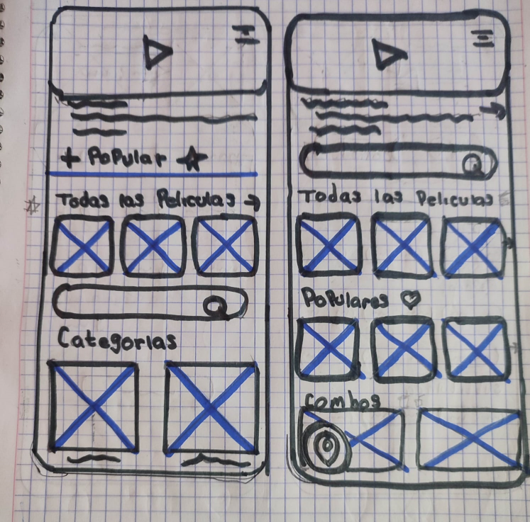 + Popular
Todas las Peliculas
Categorias
Todas las Peliculas
Populares
Combos